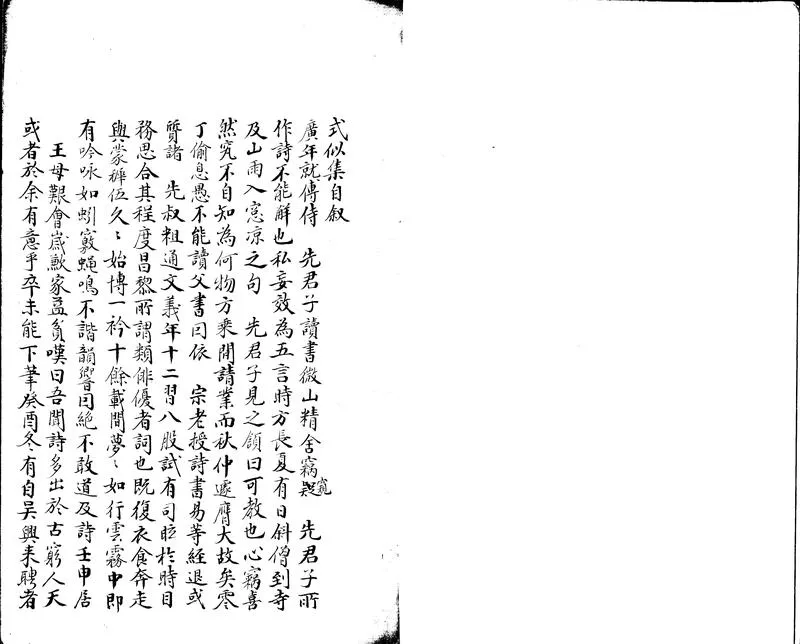 式似集自叙
廣年就傅侍　先君子讀書微山精舍竊窺　先君子所
作詩不能解也私妄效為五言時方長夏有日斜僧到寺
及山雨入窓凉之句　先君子見之頷曰可教也心竊喜
然究不自知為何物方乘間請業而秋仲遽膺大故矣零
丁偷息愚不能讀父書曰依　宗老授詩書易等經退或
質諸　先叔粗通文義年十二習八股試有司眩於時目
務思合其程度昌黎所謂類俳優者詞也既復衣食奔走
與蒙稺伍久〻始博一衿十餘載間夢〻如行雲霧中即
有吟咏如蚓竅蝇鳴不諧韻響曰絶不敢道及詩壬申居
王母艱會嵗歉家益貧嘆曰吾聞詩多出於古窮人天
或者於余有意乎卒未能下筆癸酉冬有自吴興来聘者